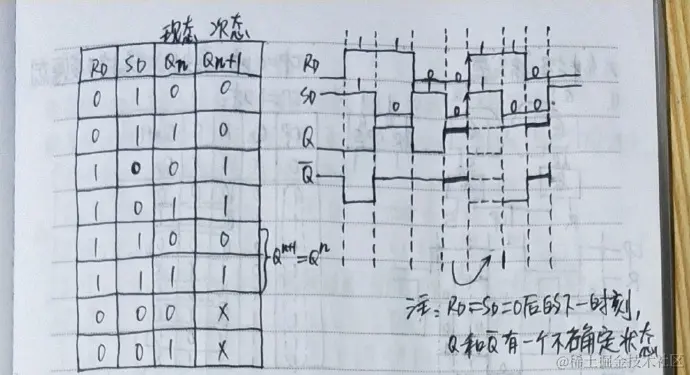 现态 次态
RD SD Qn Qn+1
0 1 0 0
0 1 1 0
1 0 0 1
1 0 1 1
1 1 0 0
1 1 1 1
0 0 0 X
0 0 1 X
Q^{n+1}=Q^n
RD 1 1 0 0 1 1 0
SD 1 0 1 0 1 0 0
Q
Q̅
注：RD=SD=0后的下一时刻，
Q和Q̅有一个不确定状态
@稀土掘金技术社区